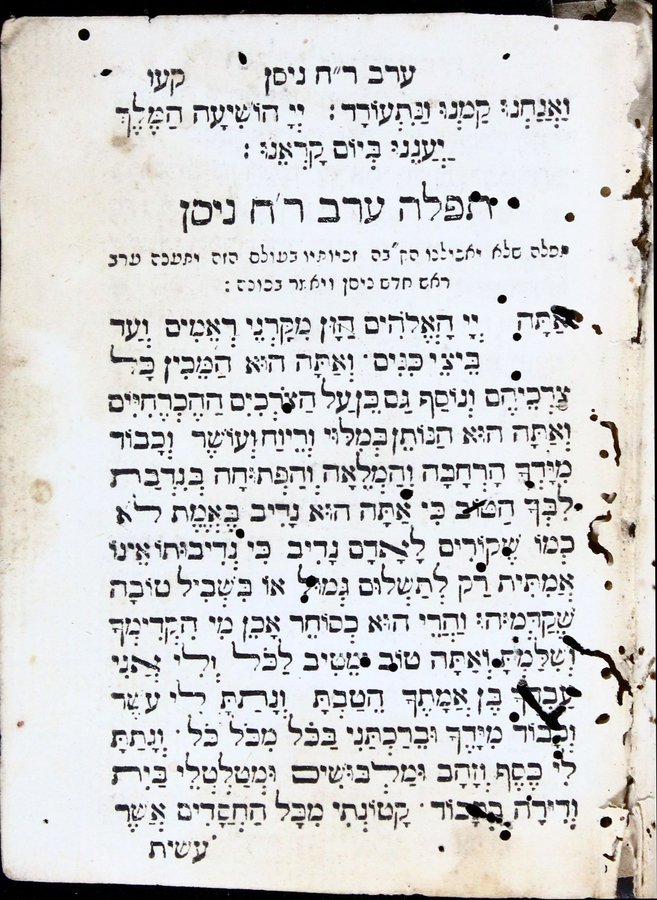 ערב ר״ח ניסן קעו
וַאֲנַחְנוּ קַמְנוּ וַנִּתְעוֹדָד: יְיָ הוֹשִׁיעָה הַמֶּלֶךְ
יַעֲנֵנוּ בְּיוֹם קָרְאֵנוּ:
תפלה ערב ר״ח ניסן
תפלה שלא יאכילנו הק״בה זכיותיו בעולם הזה יתענה ערב
ראש חדש ניסן ויאמר בכונה:
אַתָּה יְיָ הָאֱלֹהִים הַזָּן מִקַּרְנֵי רְאֵמִים וְעַד
בֵּיצֵי כִנִּים. וְאַתָּה הוּא הַמֵּכִין כָּל
צָרְכֵיהֶם וְנוֹסַף גַּם כֵּן עַל הַצֹּרְכִים הַהֶכְרֵחִיִּים
וְאַתָּה הוּא הַנּוֹתֵן בְּמִלּוּי וְרֵיוַח וְעוֹשֶׁר וְכָבוֹד
מִיָּדְךָ הָרְחָבָה וְהַמְלֵאָה וְהַפְּתוּחָה בְּנִדְבַת
לִבְּךָ הַטּוֹב כִּי אַתָּה הוּא נָדִיב בֶּאֱמֶת לֹא
כְּמוֹ שֶׁקּוֹרִים לָאָדָם נָדִיב כִּי נְדִיבוּתוֹ אֵינוֹ
אֲמִתִּית רַק לְתַשְׁלוּם גְּמוּל אוֹ בִּשְׁבִיל טוֹבָה
שֶׁקִּדְּמוּהוּ וַהֲרֵי הוּא כְסוֹחֵר אָכֵן מִי הִקְדִּימְךָ
וְשִׁלַּמְתָּ וְאַתָּה טוֹב וּמֵטִיב לַכֹּל וְלִי אֲנִי
עַבְדְּךָ בֶּן אֲמָתֶךָ הֵטַבְתָּ וְנָתַתָּ לִי עֹשֶׁר
וְכָבוֹד מִיָּדְךָ וּבֵרַכְתַּנִי בַּכֹּל מִכֹּל כֹּל. וְנָתַתָּ
לִי כֶּסֶף וְזָהָב וּמַלְבּוּשִׁים וּמְטַלְטְלֵי בַּיִת
וְדִירָה בְּכָבוֹד. קָטוֹנְתִּי מִכָּל הַחֲסָדִים אֲשֶׁר
עשית